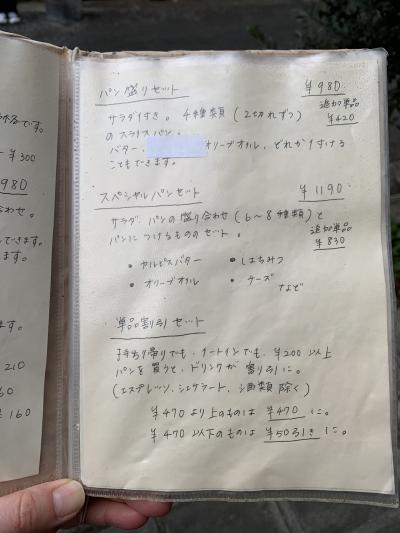 られるです。
ー ¥300
980
わせ。
できます。
ます。
ます。
210
60
¥160
パン盛りセット ¥980
サラダ付き。4種類(2切れずつ) 追加単品
のスライスパン。 ¥420
バター、 オリーブオイル、どれか1付ける
こともできます。
スペシャルパンセット ¥1190
サラダ、パンの盛り合わせ(6〜8種類)と 追加単品
パンにつけるもののセット。 ¥830
• カルピスバター • はちみつ
• オリーブオイル • チーズ
など
単品割引セット
お持ち帰りでも、イートインでも、¥200以上
パンを買うと、ドリンクが割引に。
(エスプレッソ、シェケラート、酒類除く)
¥470より上のものは ¥470に。
¥470以下のものは ¥50引きに。